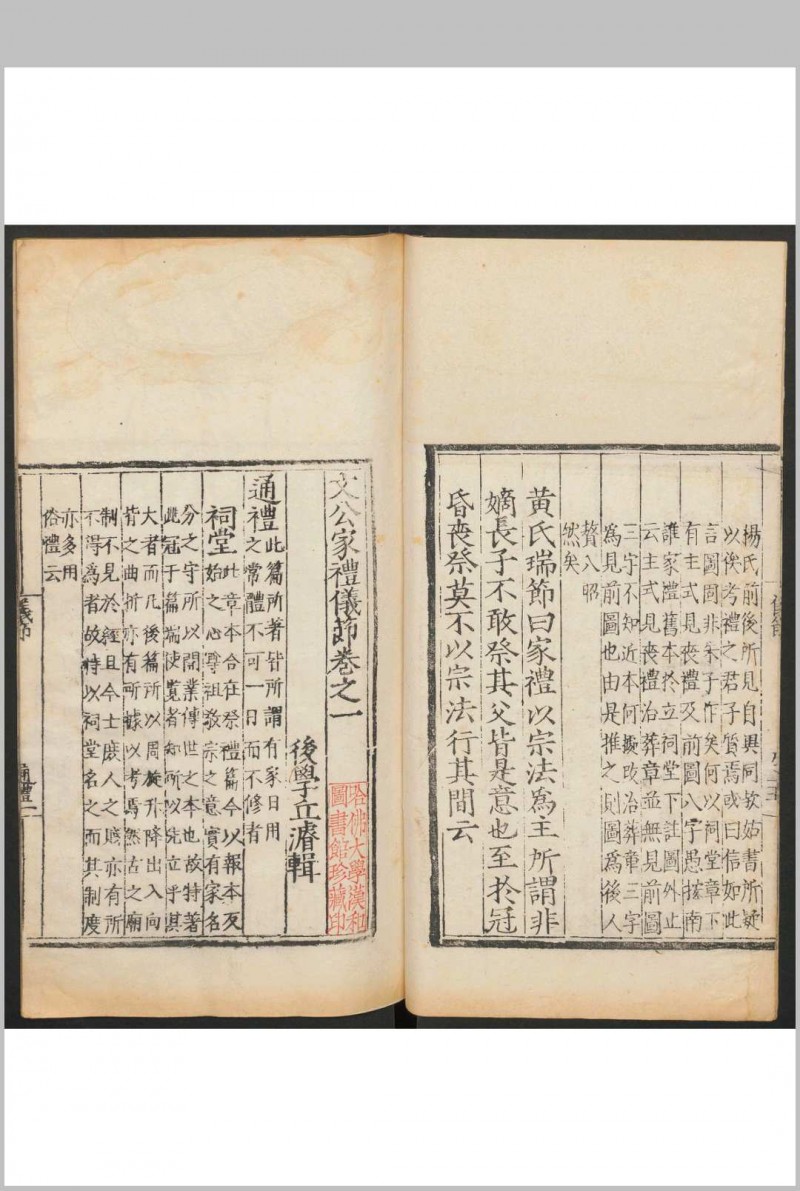 楊氏前後所見自異同故姑書所疑
以俟考禮之君子質焉或曰信如此
言圖固非朱子作矣何以祠堂章下
有主式見喪禮及前圖八字愚按南
雝家禮舊本於立祠堂下註圖外止
云主式見喪禮治葬章並無見前圖
三字不知近本何據改治葬章三字
為見前圖也由是推之則圖為後人
贅入昭
然矣
黃氏瑞節曰家禮以宗法為主所謂非
嫡長子不敢祭其父皆是意也至於冠
昏喪祭莫不以宗法行其間云
儀節
文公家禮儀節卷之一
後學丘濬輯
哈佛大學漢和
圖書館珍藏印
通禮
此篇所著皆所謂有家日用
之常體不可一日而不修者
祠堂
此章本合在祭禮篇今以報本反
始之心尊祖敬宗之意實有家名
分之守所以開業傳世之本也故特著
此冠于篇端使覽者知所以先立乎其
大者而凡後篇所以周旋升降出入向
背之曲折亦有所據以考焉然古之廟
制不見於經且今士庶人之賤亦有所
不得為者故特以祠堂名之而其制度
亦多用
俗禮云
儀節
通禮一